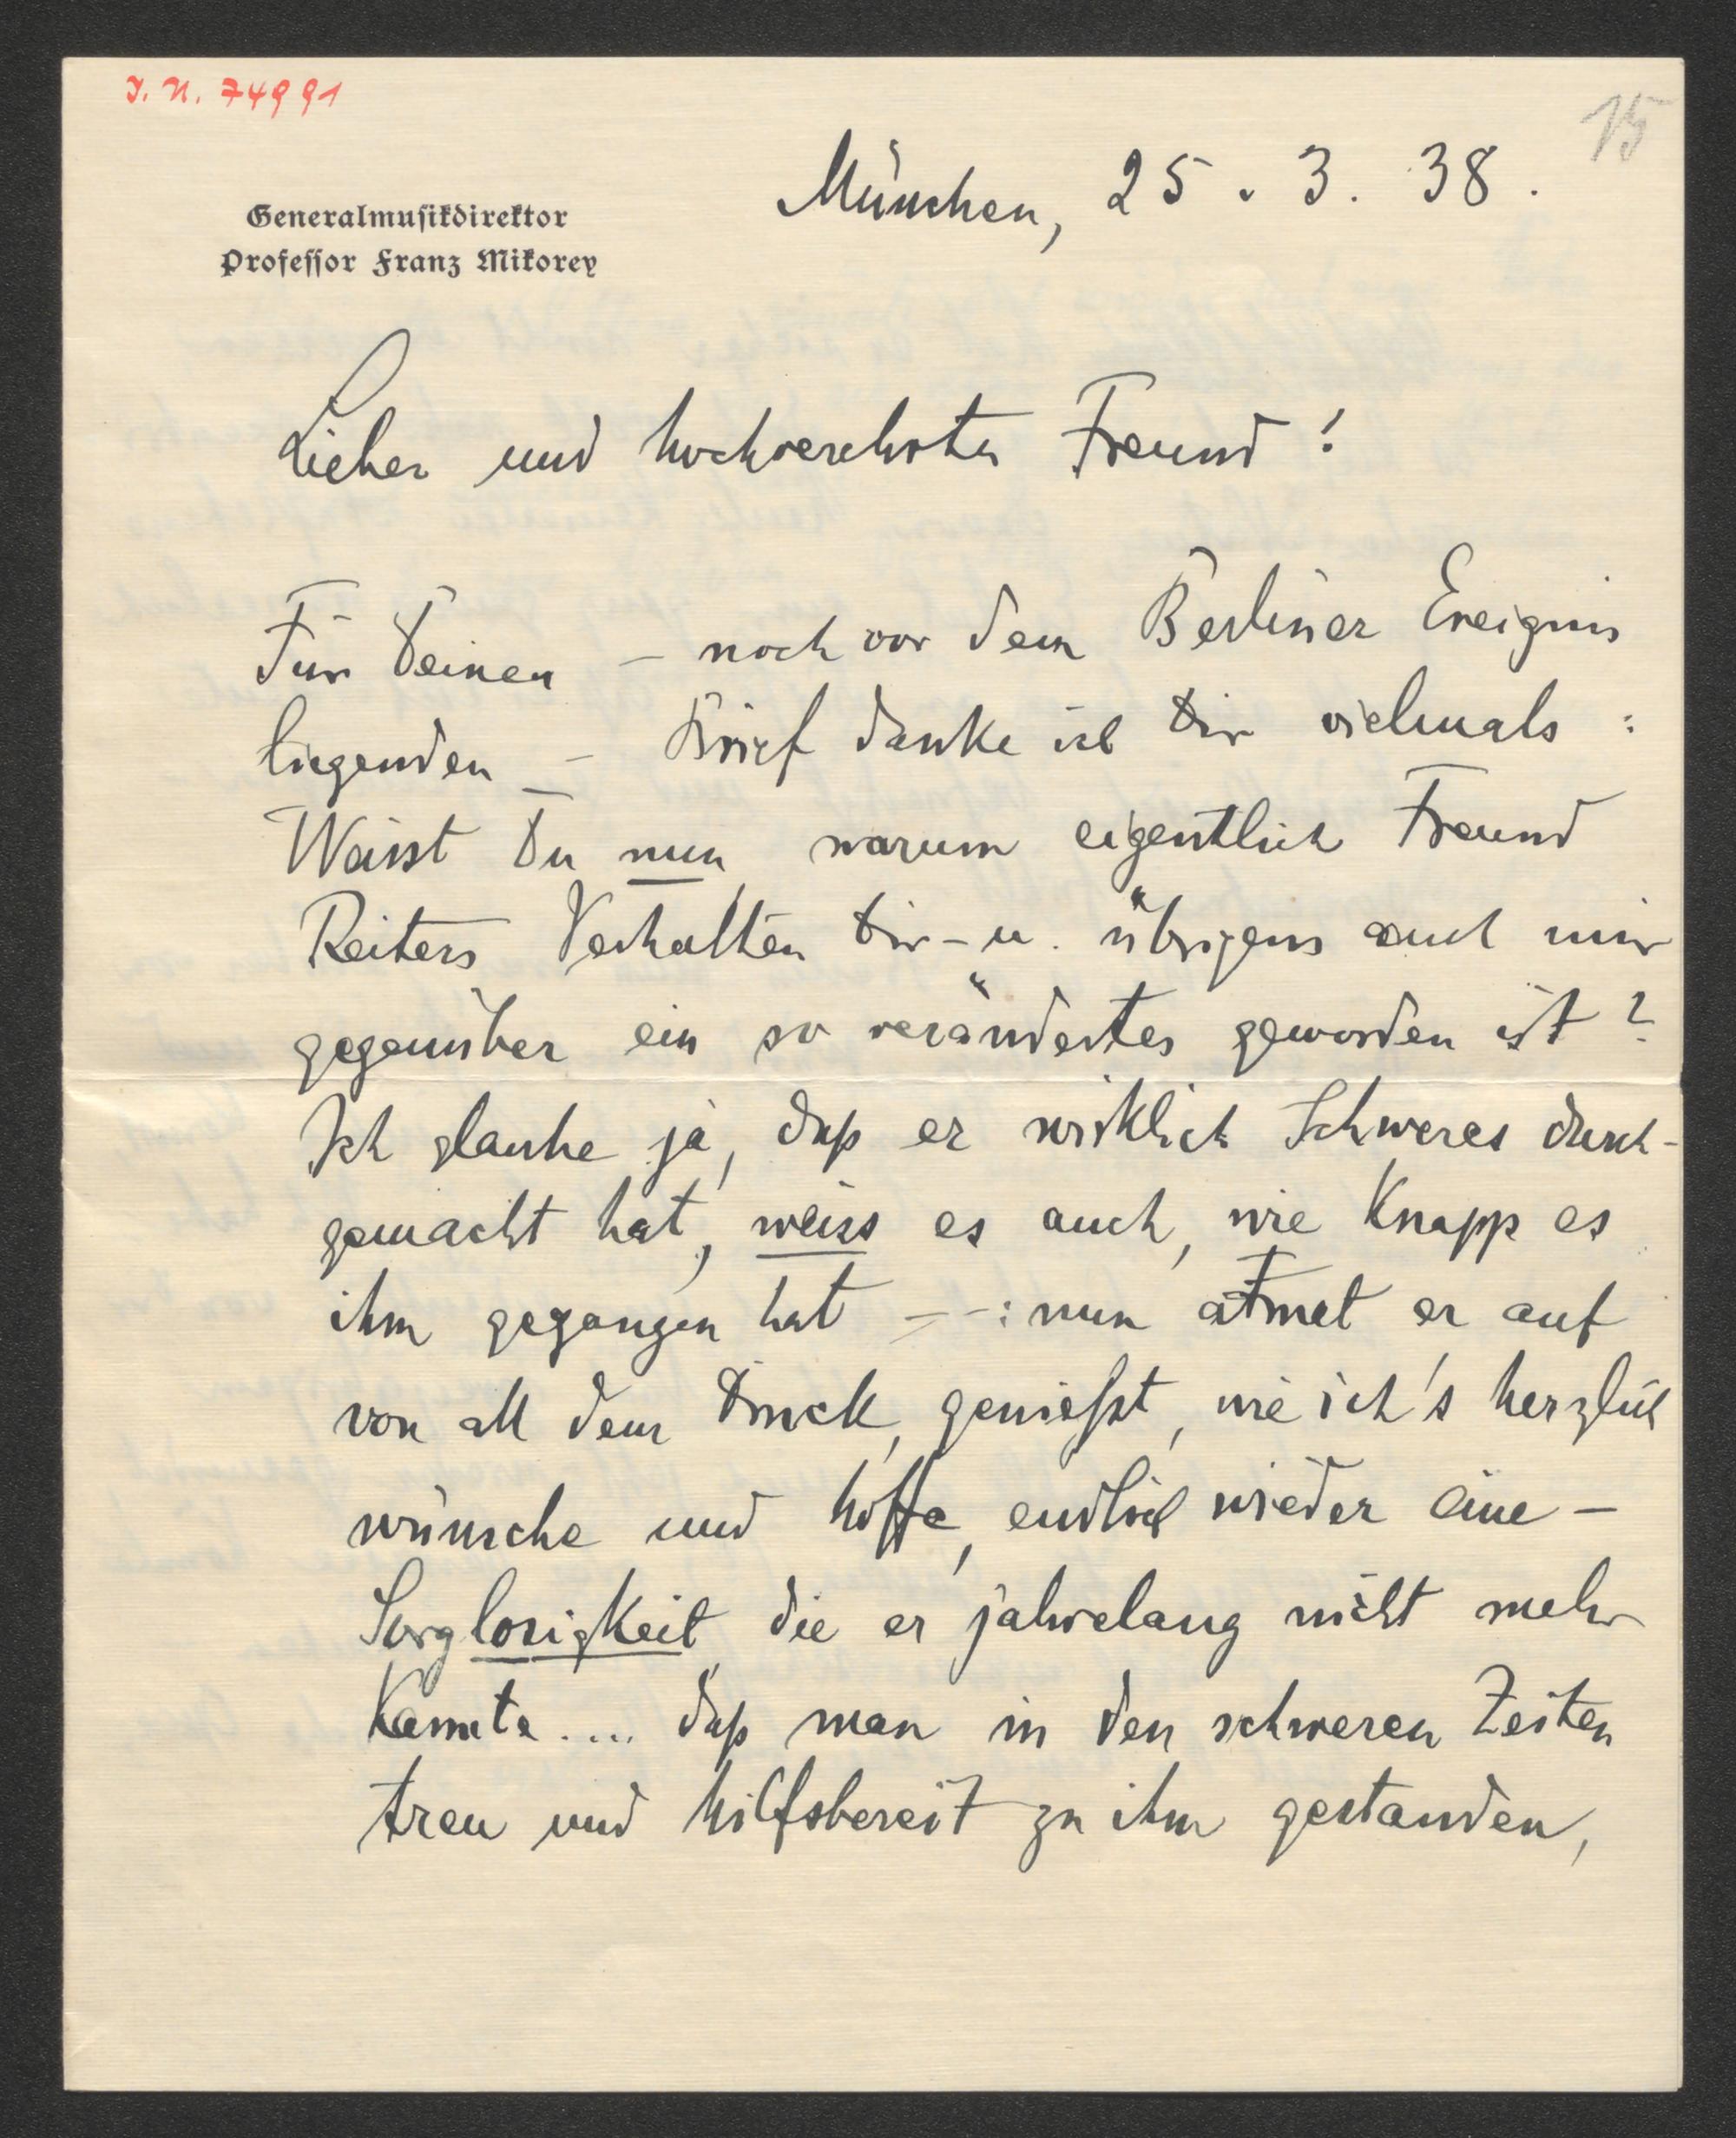 J. N. 74991
15
München, 25. 3. 38.
Generalmusikdirektor
Professor Franz Mikorey
Lieber und hochverehrter Freund!
Für Deinen – noch vor dem Berliner Ereignis
liegenden – Brief danke ich Dir vielmals:
Weisst Du nun, warum eigentlich Freund
Reiters Verhalten Dir - u. übrigens auch mir
gegenüber ein so verändertes geworden ist?
Ich glaube ja, daß er wirklich Schweres durch-
gemacht hat, weiss es auch, wie Knapp es
ihm gegangen hat – –: nun atmet er auf
von all dem Druck, genießt, wie ich's herzlich
wünsche und hoffe, endlich wieder eine –
Sorglosigkeit die er jahrelang nicht mehr
Kannte .... daß man in den schweren Zeiten
treu und hilfsbereit zu ihm gestanden,